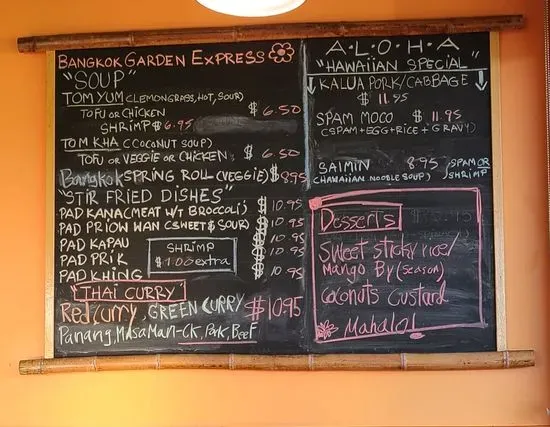 BANGKOK GARDEN EXPRESS
"SOUP"
TOM YUM (LEMONGRASS, HOT, SOUR)
TOFU OR CHICKEN $ 6.50
SHRIMP $ 6.95
TOM KHA (COCONUT SOUP)
TOFU OR VEGGIE OR CHICKEN $ 6.50
Bangkok SPRING ROLL (VEGGIE) $ 8.95
"STIR FRIED DISHES"
PAD KANA (MEAT W/T BROCCOLI) $ 10.95
PAD PRIOW WAN (SWEET & SOUR) $ 10.95
PAD KAPAU $ 10.95
PAD PRIK $ 10.95
PAD KHING $ 10.95
SHRIMP
$1.00 extra
"THAI CURRY"
Red curry, GREEN CURRY $10.95
Panang, MASAMAN-CK, Pork, Beef
A·L·O·H·A
"HAWAIIAN SPECIAL"
KALUA PORK/CABBAGE
$ 11.95
SPAM MOCO $ 11.95
(SPAM+EGG+RICE+GRAVY)
SAIMIN 8.95 SPAM OR
(HAWAIIAN NOODLE SOUP) SHRIMP
Desserts
Sweet sticky rice/
Mango By (Season)
Coconuts Custard
Mahalo!